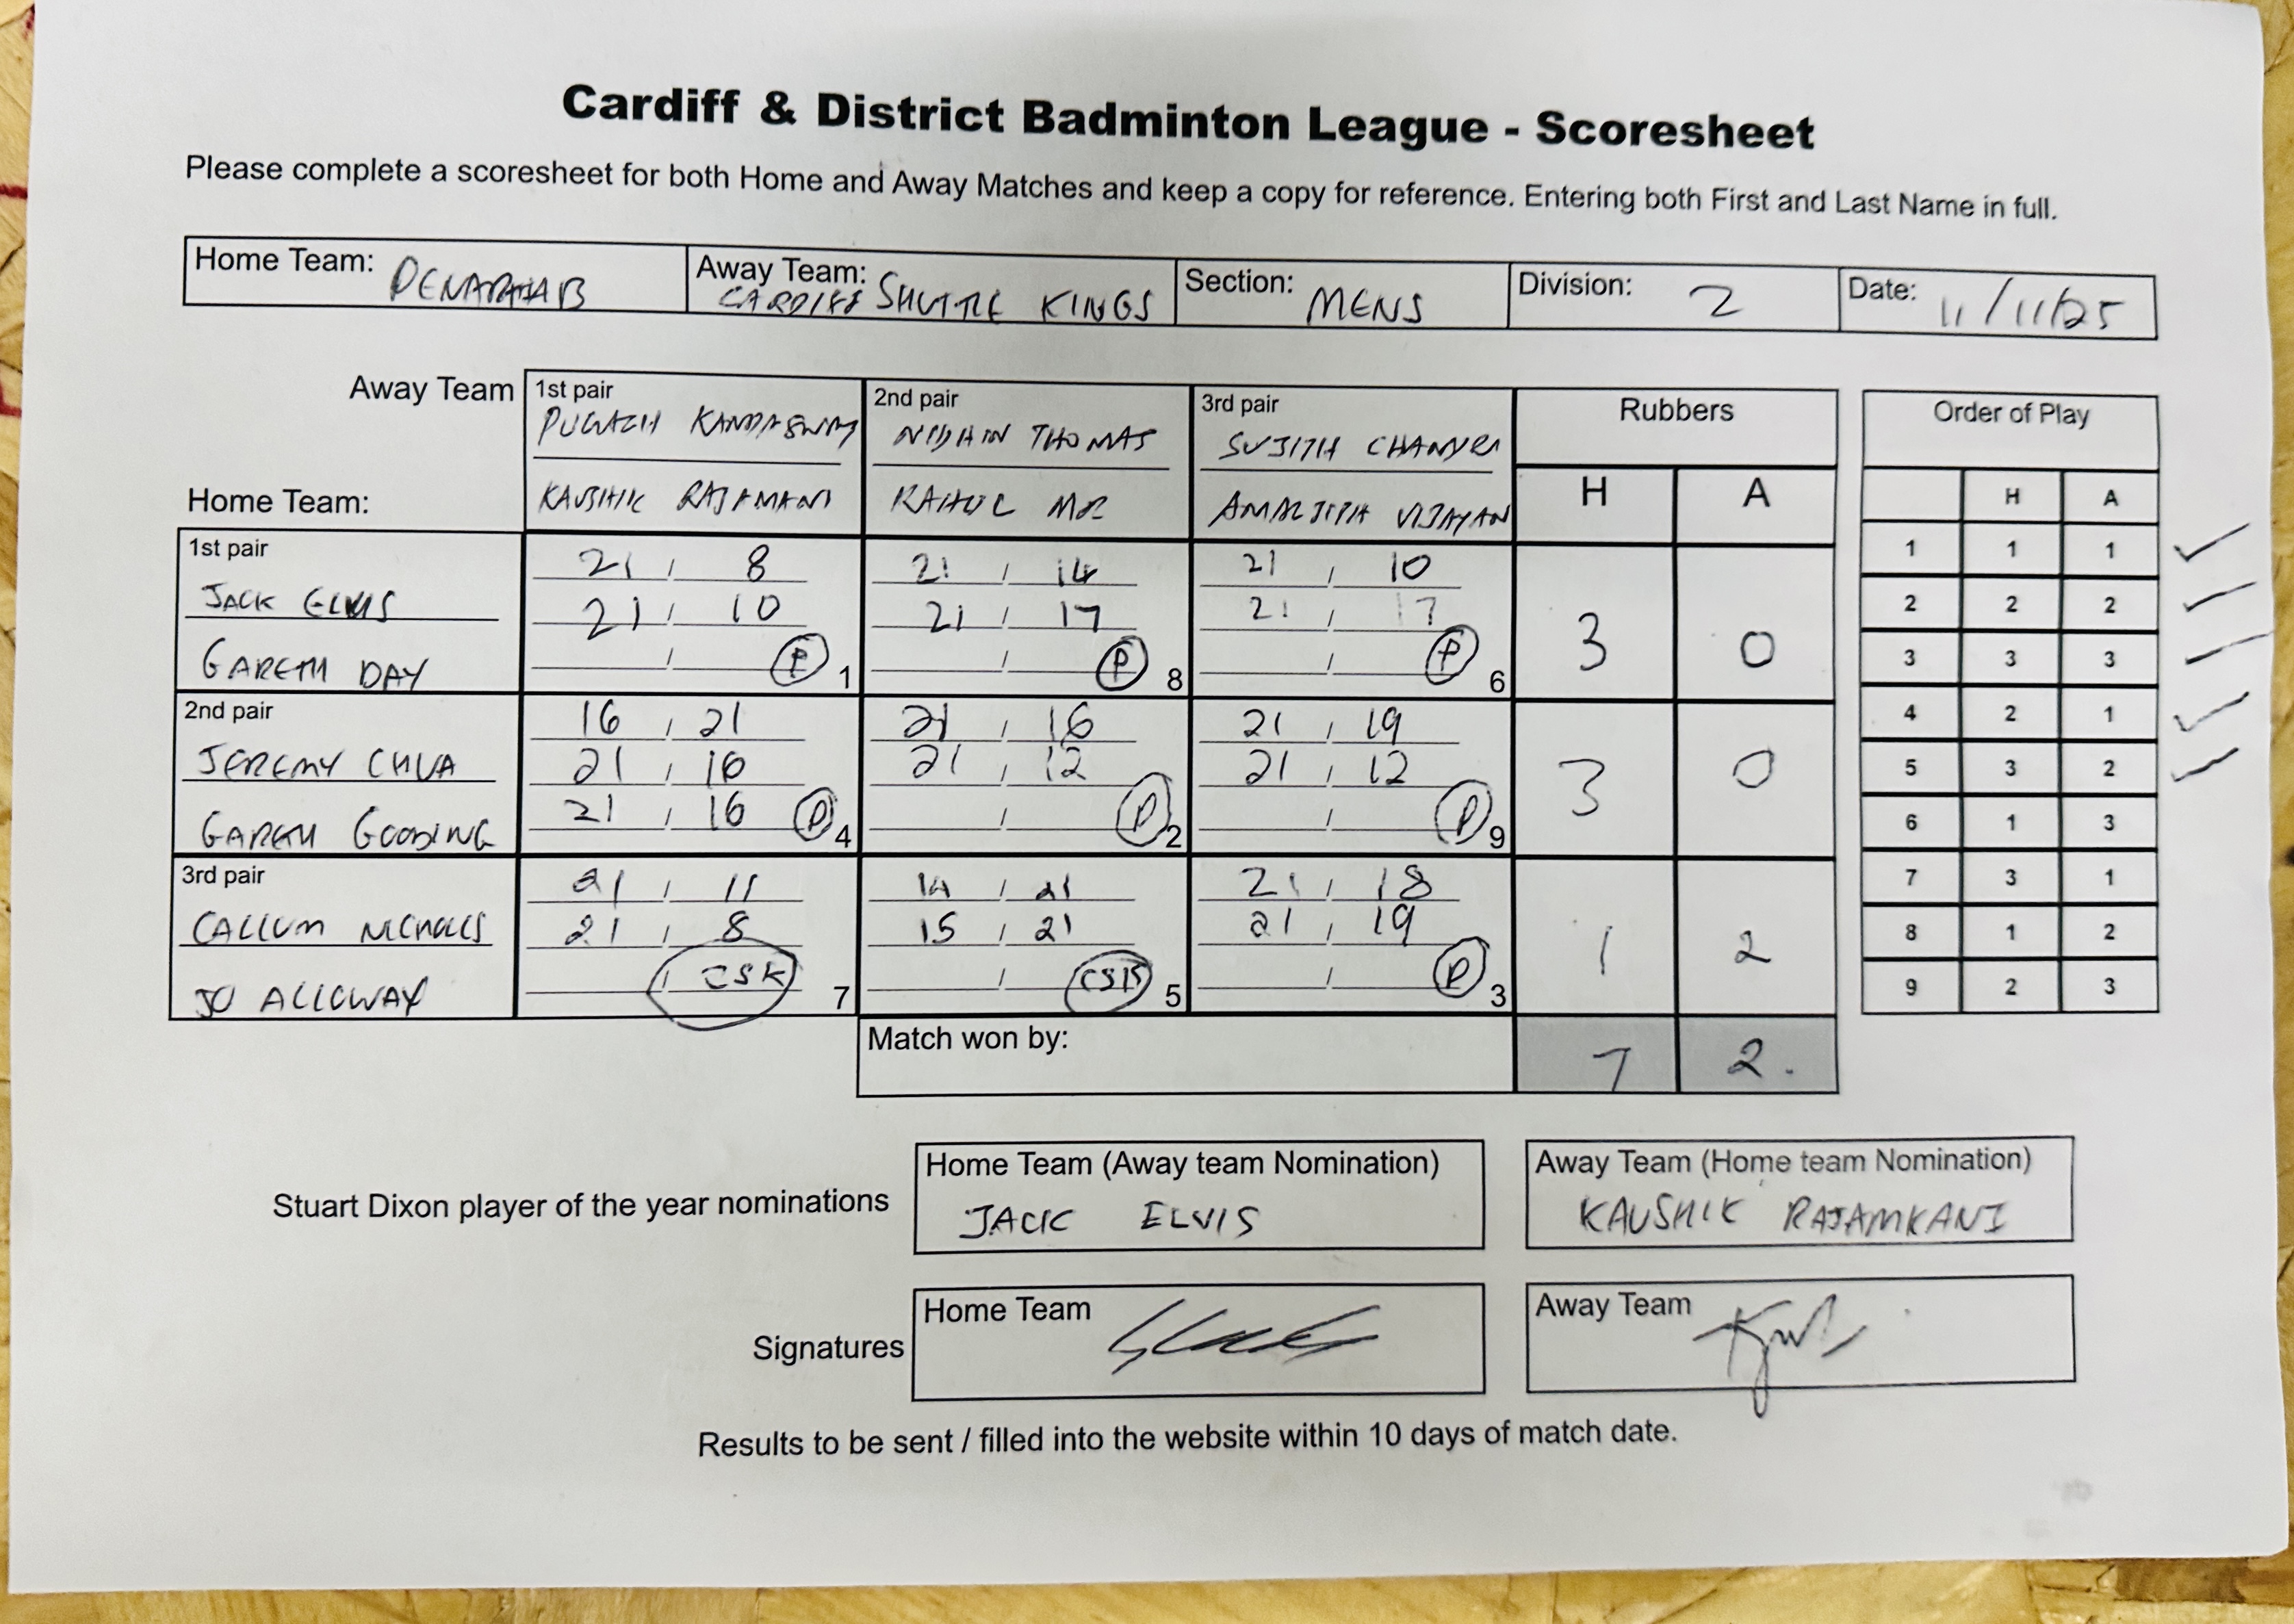 Cardiff & District Badminton League - Scoresheet
Please complete a scoresheet for both Home and Away Matches and keep a copy for reference. Entering both First and Last Name in full.
Home Team: Away Team: CARDIFF SHUTTLE KINGS Section: MENS Division: 2 Date: 11/11/25
Away Team 1st pair 2nd pair 3rd pair Rubbers Order of Play
PUGAZH KANDASWM NIDHIN THOMAS SUJITH CHANDRA
Home Team: KAUSHIK RAJAMANI RAHUL AMALJITH VIJAYAN H A H A
1st pair 21 / 8 21 / 14 21 / 10 1 1 1
JACK ELVIS 21 / 10 21 / 17 21 / 17 3 0 2 2 2
GARETH DAY / P 1 / P 8 / P 6 3 3 3
2nd pair 16 / 21 21 / 16 21 / 19 4 2 1
JEREMY CHUA 21 / 16 21 / 12 21 / 12 3 0 5 3 2
GARETH GOODING 21 / 16 P 4 / P 2 / P 9 6 1 3
3rd pair 21 / 11 14 / 21 21 / 18 7 3 1
CALLUM NICHOLLS 21 / 8 15 / 21 21 / 19 1 2 8 1 2
JO ALLOWAY / CSK 7 / CSK 5 / P 3 9 2 3
Match won by: 7 2.
Home Team (Away team Nomination) Away Team (Home team Nomination)
Stuart Dixon player of the year nominations JACK ELVIS KAUSHIK RAJAMKANI
Home Team Away Team
Signatures
Results to be sent / filled into the website within 10 days of match date.